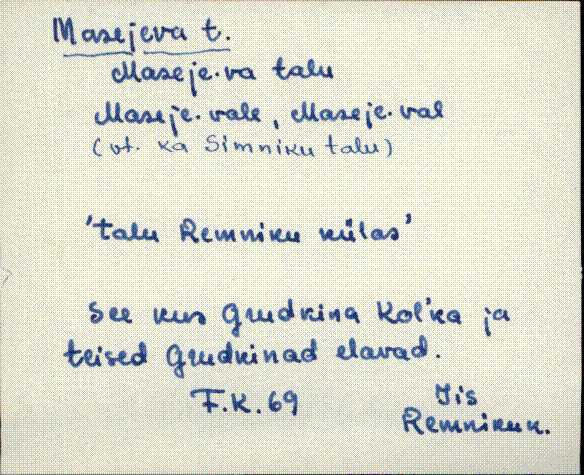 Masejeva t.
Maseje·va talu
Maseje·vale, Maseje·val
(vt. ka Simniku talu)
'talu Remniku külas'
See kus Grudkina Kol'ka ja
teised Grudkinad elavad.
F.K. 69
Iis
Remniku k.